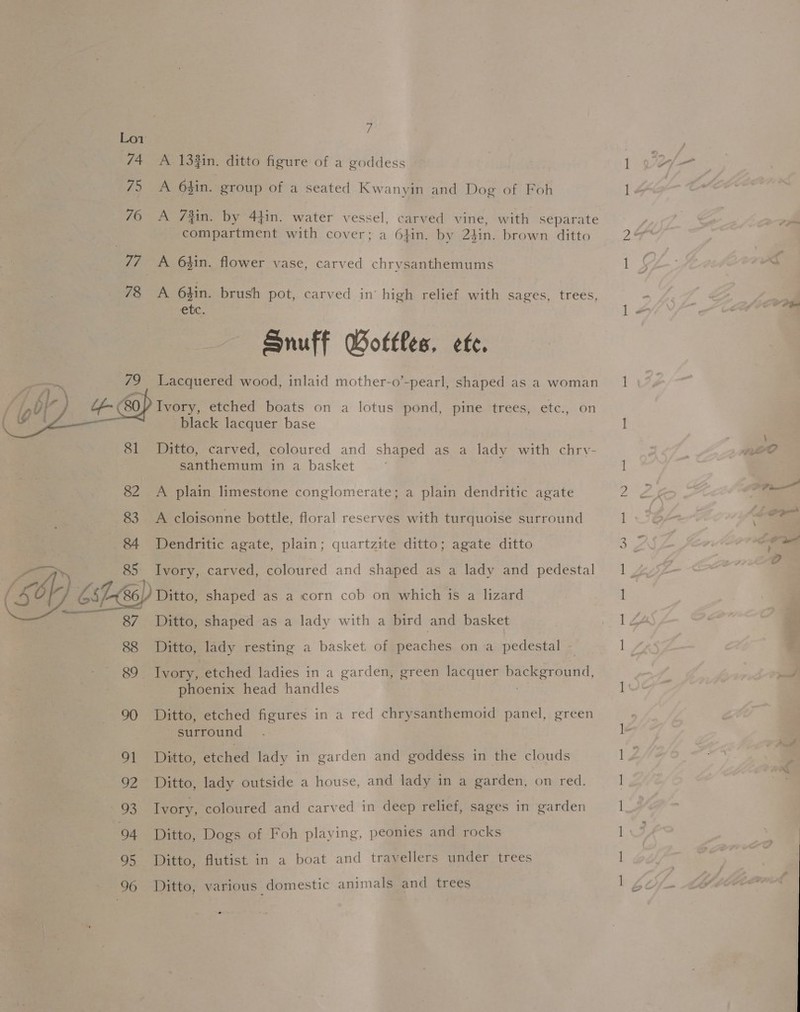 7
Lot
74 A 13¾in. ditto figure of a goddess 1
75 A 6½in. group of a seated Kwanyin and Dog of Foh 1
76 A 7¾in. by 4½in. water vessel, carved vine, with separate
compartment with cover; a 6½in. by 2½in. brown ditto 2
77 A 6½in. flower vase, carved chrysanthemums 1
78 A 6½in. brush pot, carved in high relief with sages, trees,
etc. 1
Snuff Bottles, etc.
79 Lacquered wood, inlaid mother-o'-pearl, shaped as a woman 1
80 Ivory, etched boats on a lotus pond, pine trees, etc., on
black lacquer base 1
81 Ditto, carved, coloured and shaped as a lady with chry-
santhemum in a basket 1
82 A plain limestone conglomerate; a plain dendritic agate 2
83 A cloisonne bottle, floral reserves with turquoise surround 1
84 Dendritic agate, plain; quartzite ditto; agate ditto 3
85 Ivory, carved, coloured and shaped as a lady and pedestal 1
86 Ditto, shaped as a corn cob on which is a lizard 1
87 Ditto, shaped as a lady with a bird and basket 1
88 Ditto, lady resting a basket of peaches on a pedestal 1
89 Ivory, etched ladies in a garden, green lacquer background,
phoenix head handles 1
90 Ditto, etched figures in a red chrysanthemoid panel, green
surround . 1
91 Ditto, etched lady in garden and goddess in the clouds 1
92 Ditto, lady outside a house, and lady in a garden, on red. 1
93 Ivory, coloured and carved in deep relief, sages in garden 1
94 Ditto, Dogs of Foh playing, peonies and rocks 1
95 Ditto, flutist in a boat and travellers under trees 1
96 Ditto, various domestic animals and trees 1